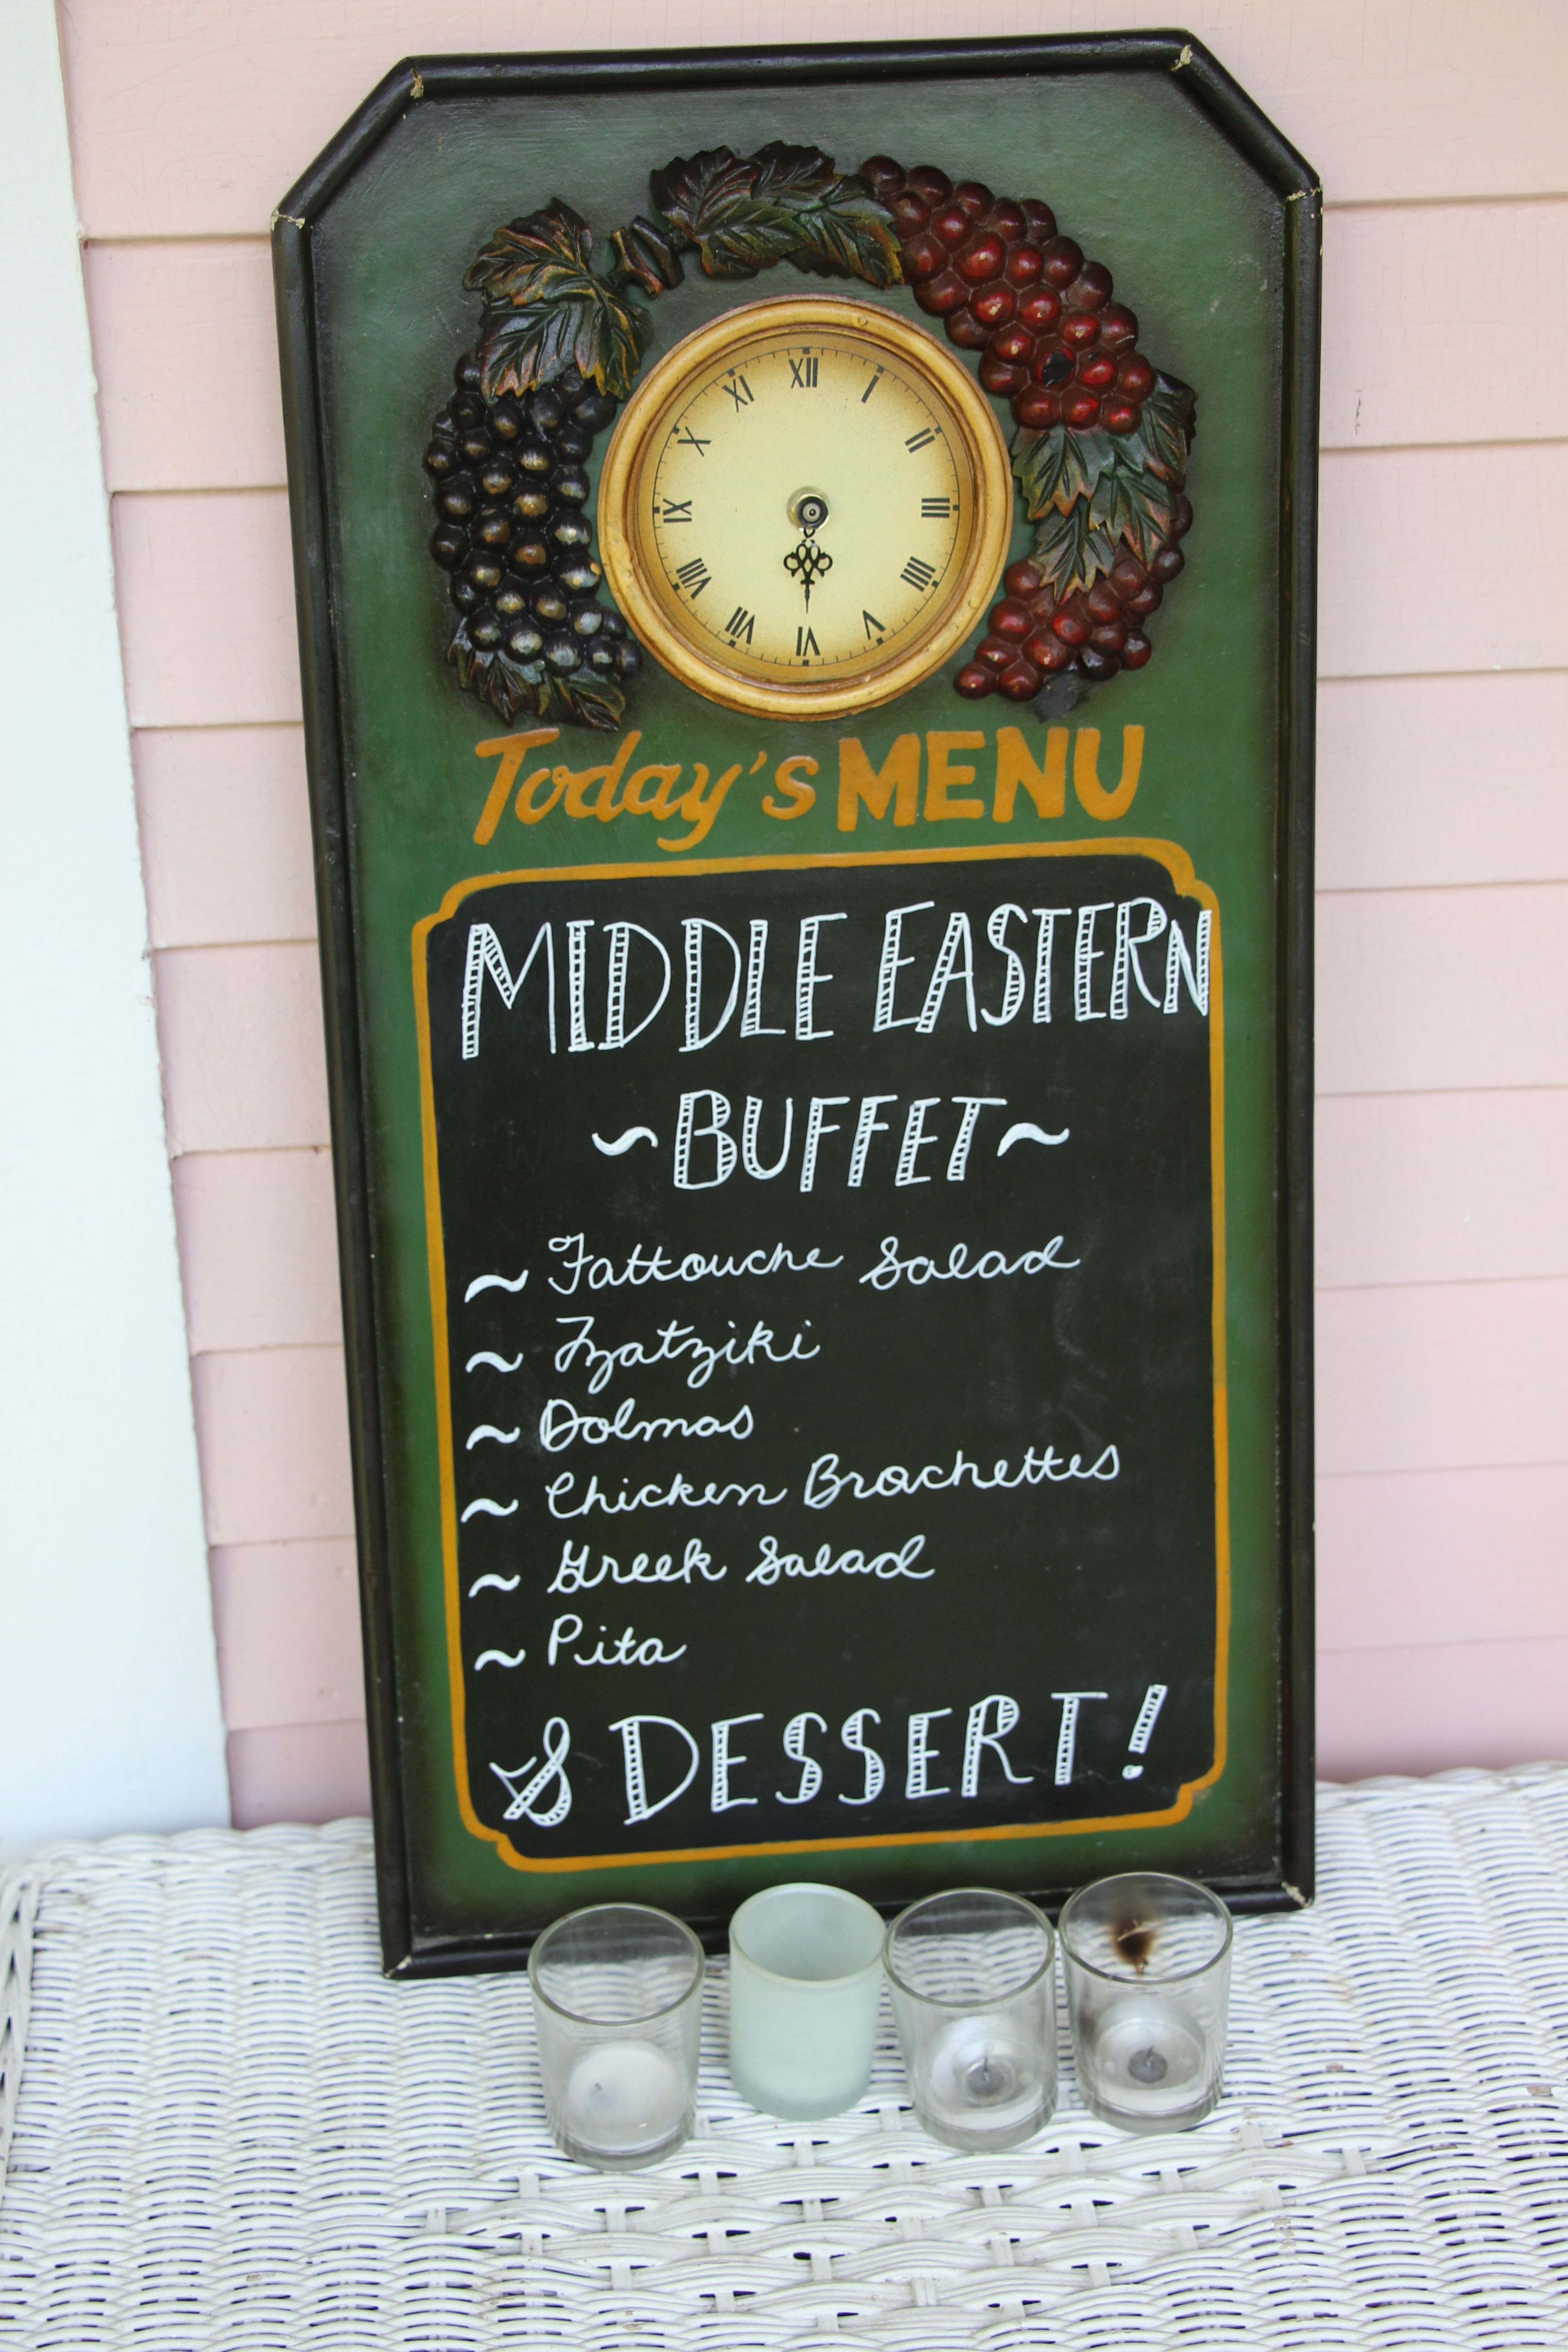 XII
I
II
III
IIII
V
VI
VII
VIII
IX
X
XI
Today's MENU
MIDDLE EASTERN
~BUFFET~
~ Fattouche Salad
~ Tzatziki
~ Dolmas
~ Chicken Brochettes
~ Greek Salad
~ Pita
& DESSERT!